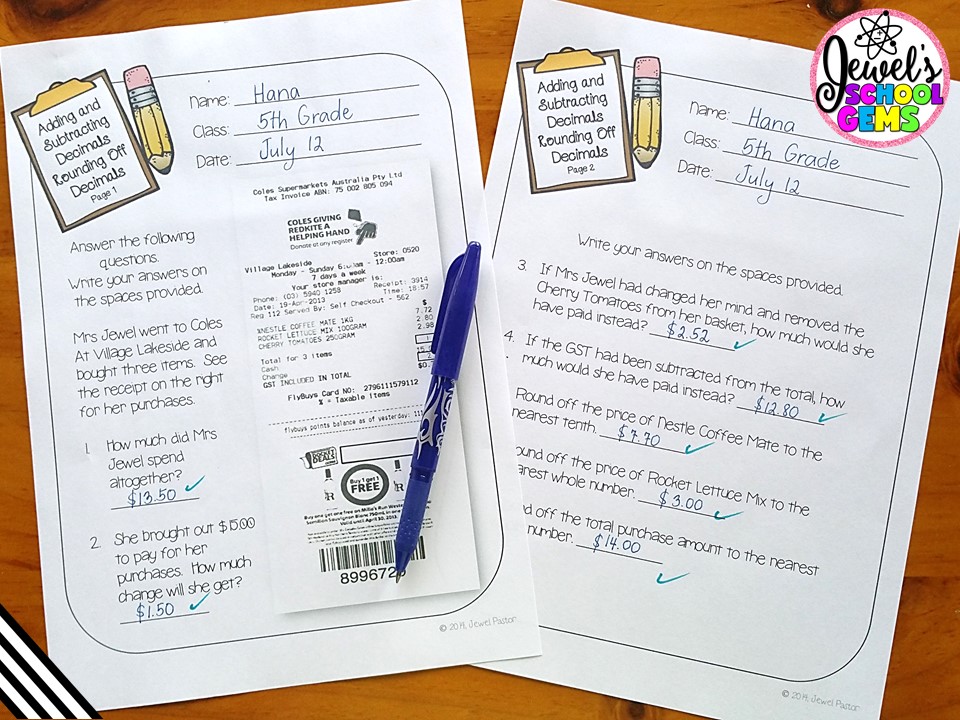 Adding and
Subtracting
Decimals
Rounding Off
Decimals
Page 1
Name: Hana
Class: 5th Grade
Date: July 12
Answer the following
questions.
Write your answers on
the spaces provided.
Mrs Jewel went to Coles
At Village Lakeside and
bought three items. See
the receipt on the right
for her purchases.
1. How much did Mrs
Jewel spend
altogether?
$13.50
2. She brought out $15.00
to pay for her
purchases. How much
change will she get?
$1.50
Coles Supermarkets Australia Pty Ltd
Tax Invoice ABN: 75 002 805 094
COLES GIVING
REDKITE A
HELPING HAND
Donate at any register
Village Lakeside Store: 0520
Monday - Sunday 6: - 12:00am
7 days a week
Your store manager is:
Phone: (03) 5940 1258 Receipt: 3914
Date: 19-Apr-2013 Time: 18:57
Reg 112 Served By: Self Checkout - 562
$
%NESTLE COFFEE MATE 1KG 7.72
ROCKET LETTUCE MIX 100GRAM 2.80
CHERRY TOMATOES 250GRAM 2.98
Total for 3 items
Cash
Change $0.
GST INCLUDED IN TOTAL
FlyBuys Card NO: 2796111579112
% = Taxable Items
flybuys points balance as of yesterday: 11
DOCKET
DEALS
Buy 1 get 1
FREE
Buy one get one free on Millie's Run
Semillon Sauvignon Blanc 750mL
Valid until April 30, 2013.
899672
© 2014, Jewel Pastor
Adding and
Subtracting
Decimals
Rounding Off
Decimals
Page 2
Name: Hana
Class: 5th Grade
Date: July 12
Write your answers on the spaces provided.
3. If Mrs Jewel had charged her mind and removed the
Cherry Tomatoes from her basket, how much would she
have paid instead? $2.52
4. If the GST had been subtracted from the total, how
much would she have paid instead? $12.80
Round off the price of Nestle Coffee Mate to the
nearest tenth. $7.70
ound off the price of Rocket Lettuce Mix to the
arest whole number. $3.00
d off the total purchase amount to the nearest
number. $14.00
© 2014, Jewel Pastor
Jewel's
SCHOOL
GEMS